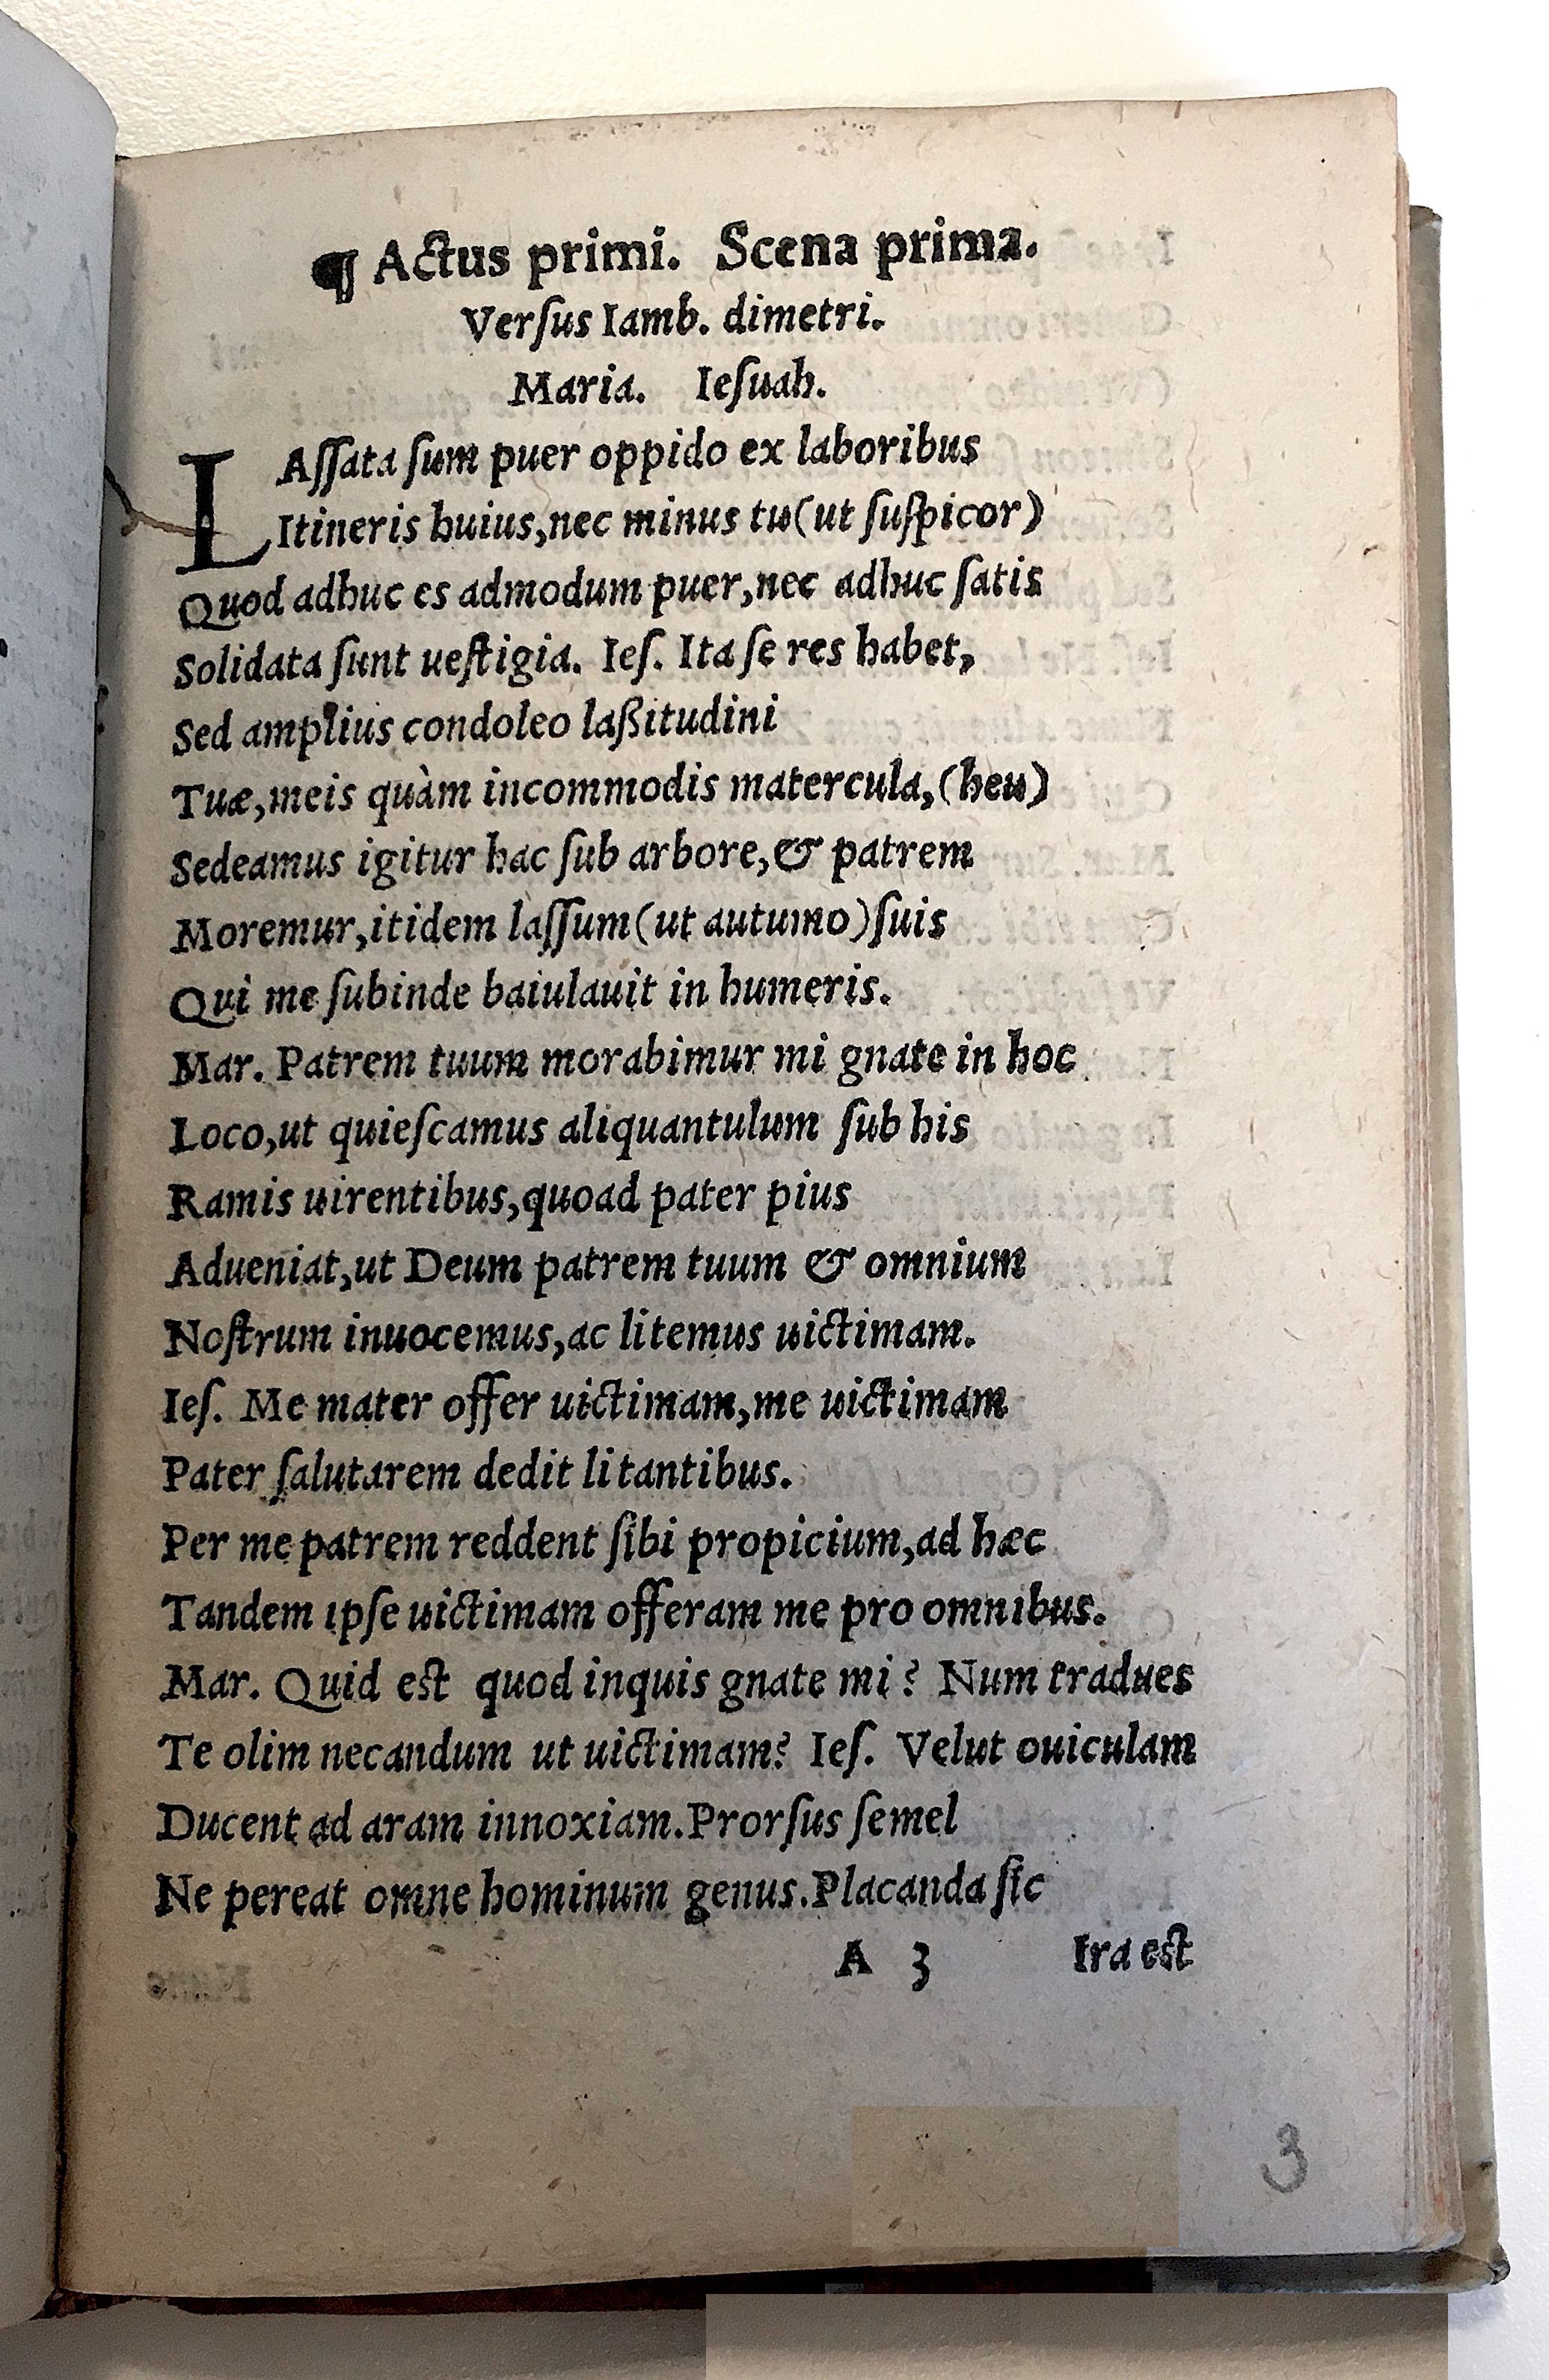 ¶ Actus primi. Scena prima.
Verſus Iamb. dimetri.
Maria. Ieſuah.
LAſſata ſum puer oppido ex laboribus
Itineris huius,nec minus tu(ut ſuſpicor)
Quod adhuc es admodum puer,nec adhuc ſatis
Solidata ſunt ueſtigia. Ieſ. Ita ſe res habet,
Sed amplius condoleo laßitudini
Tuæ,meis quàm incommodis matercula,(heu)
Sedeamus igitur hac ſub arbore,& patrem
Moremur,itidem laſſum(ut autumo)ſuis
Qui me ſubinde baiulauit in humeris.
Mar. Patrem tuum morabimur mi gnate in hoc
Loco,ut quieſcamus aliquantulum ſub his
Ramis uirentibus,quoad pater pius
Adueniat,ut Deum patrem tuum & omnium
Noſtrum inuocemus,ac litemus uictimam.
Ieſ. Me mater offer uictimam,me uictimam
Pater ſalutarem dedit litantibus.
Per me patrem reddent ſibi propicium,ad hæc
Tandem ipſe uictimam offeram me pro omnibus.
Mar. Quid eſt quod inquis gnate mi? Num tradues
Te olim necandum ut uictimam? Ieſ. Velut ouiculam
Ducent ad aram innoxiam.Prorſus ſemel
Ne pereat omne hominum genus.Placanda ſic
A 3 Ira eſt
3